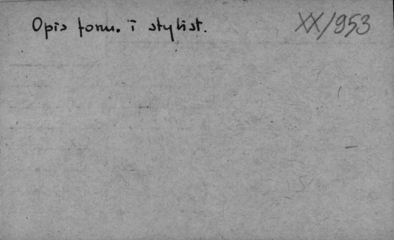 Opis form. i stylist.
XX/953